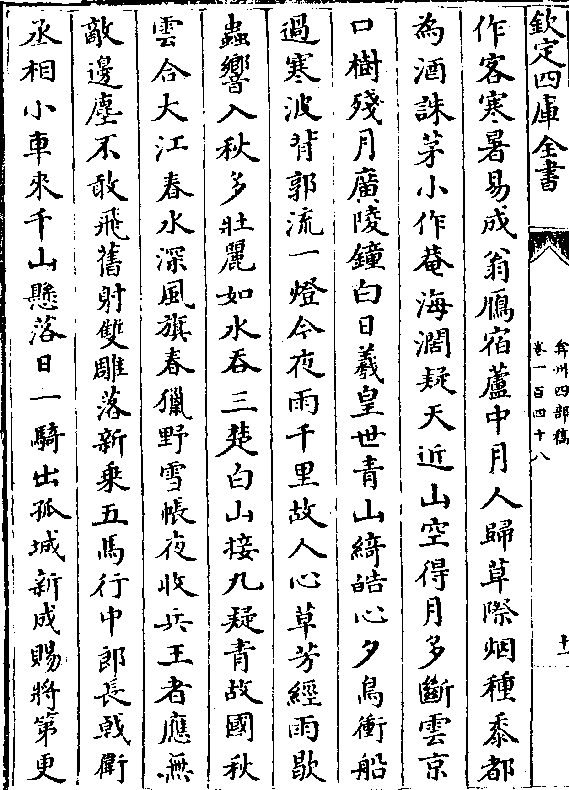 欽定四庫全書
弇州四部稿
卷一百四十八
十一
作客寒暑易成翁鴈宿蘆中月人歸草際烟種黍都
為酒誅茅小作菴海濶疑天近山空得月多斷雲京
口樹殘月廣陵鐘白日羲皇世青山綺皓心夕鳥衝船
過寒波背郭流一燈今夜雨千里故人心草芳經雨歇
蟲響入秋多壯麗如水吞三楚白山接九疑青故國秋
雲合大江春水深風旗春獵野雪帳夜收兵王者應無
敵邊塵不敢飛舊射雙雕落新乘五馬行中郎長戟衛
丞相小車來千山懸落日一騎出孤城新成賜將第更